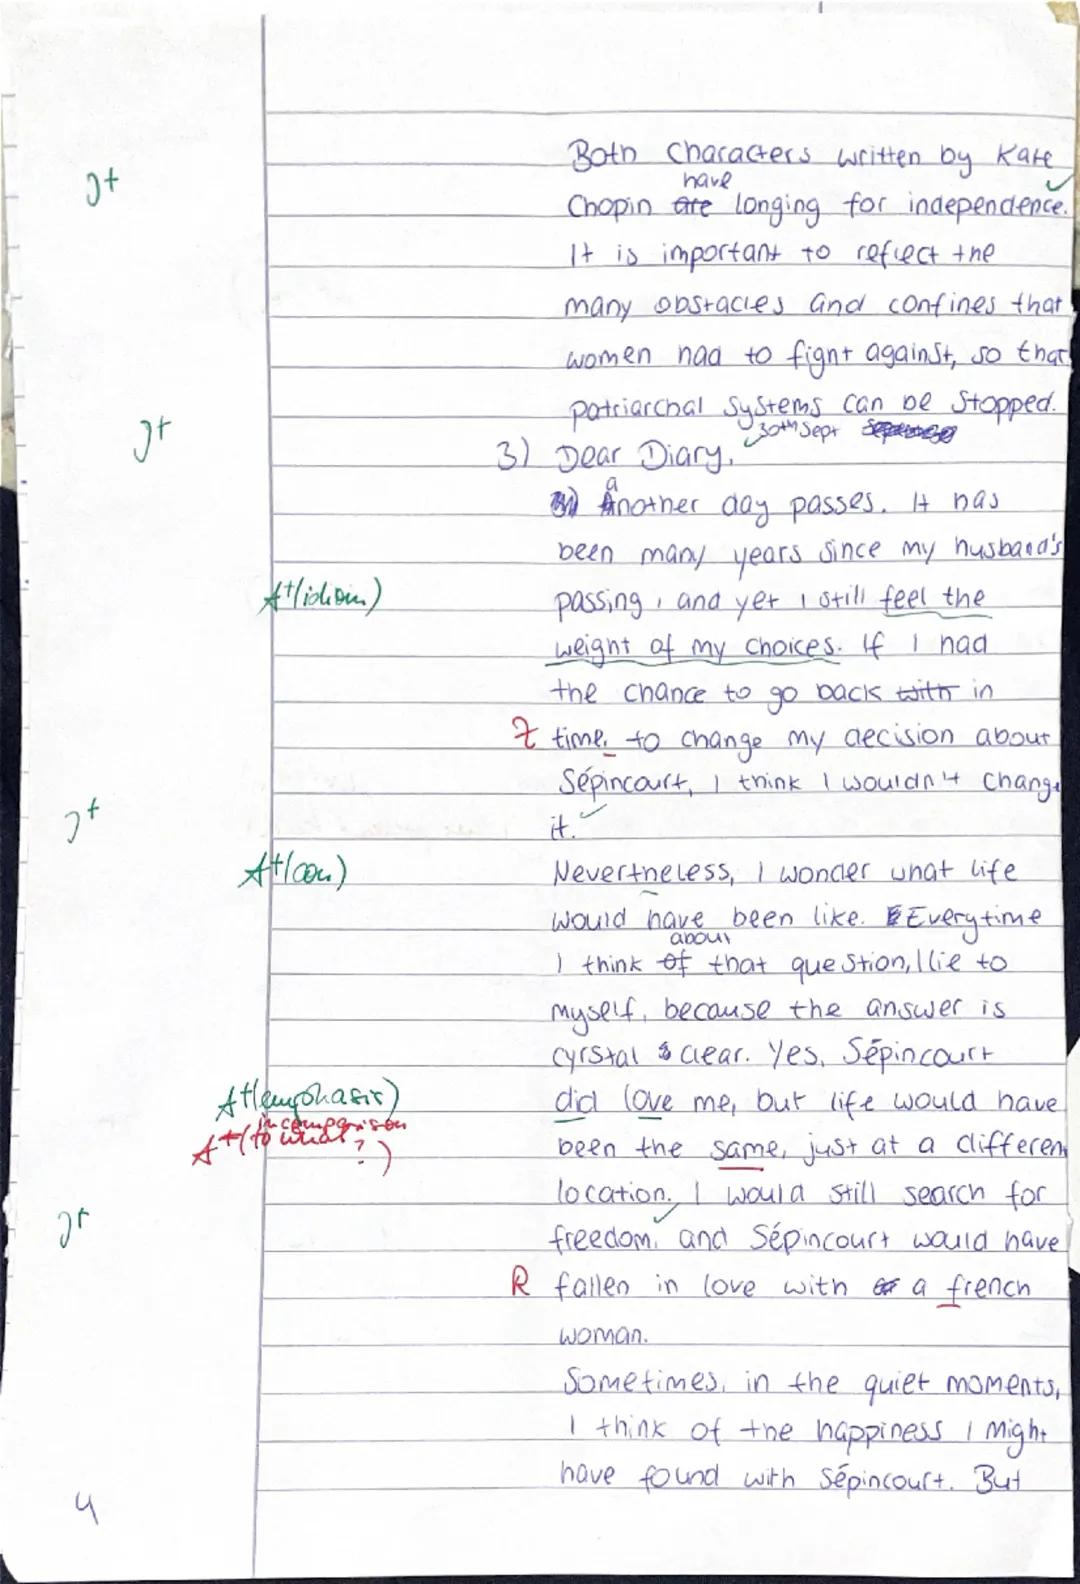 Both Characters written by Kate
J+
have
Chopin are longing for independence.
It is important to reflect the
many obstacles and confines that
women had to fight against, so that
patriarchal systems can be stopped.
J+
30th Sept
3) Dear Diary,
a
Another day passes. It has
been many years since my husband's
A+(idiom)
passing, and yet I still feel the
weight of my choices. If I had
the chance to go back with in
Z time, to change my decision about
Sépincourt, I think I wouldn't change
J+
it.
A+(con)
Nevertheless, I wonder what life
would have been like. Everytime
about
I think of that question, I lie to
myself, because the answer is
cyrstal clear. Yes, Sépincourt
A+(emphasis)
did love me, but life would have
in comparison
A+(to what?)
been the same, just at a differen
location. I would still search for
J+
freedom, and Sépincourt would have
R fallen in love with a french
woman.
Sometimes, in the quiet moments,
I think of the happiness I might
have found with Sépincourt. But
4